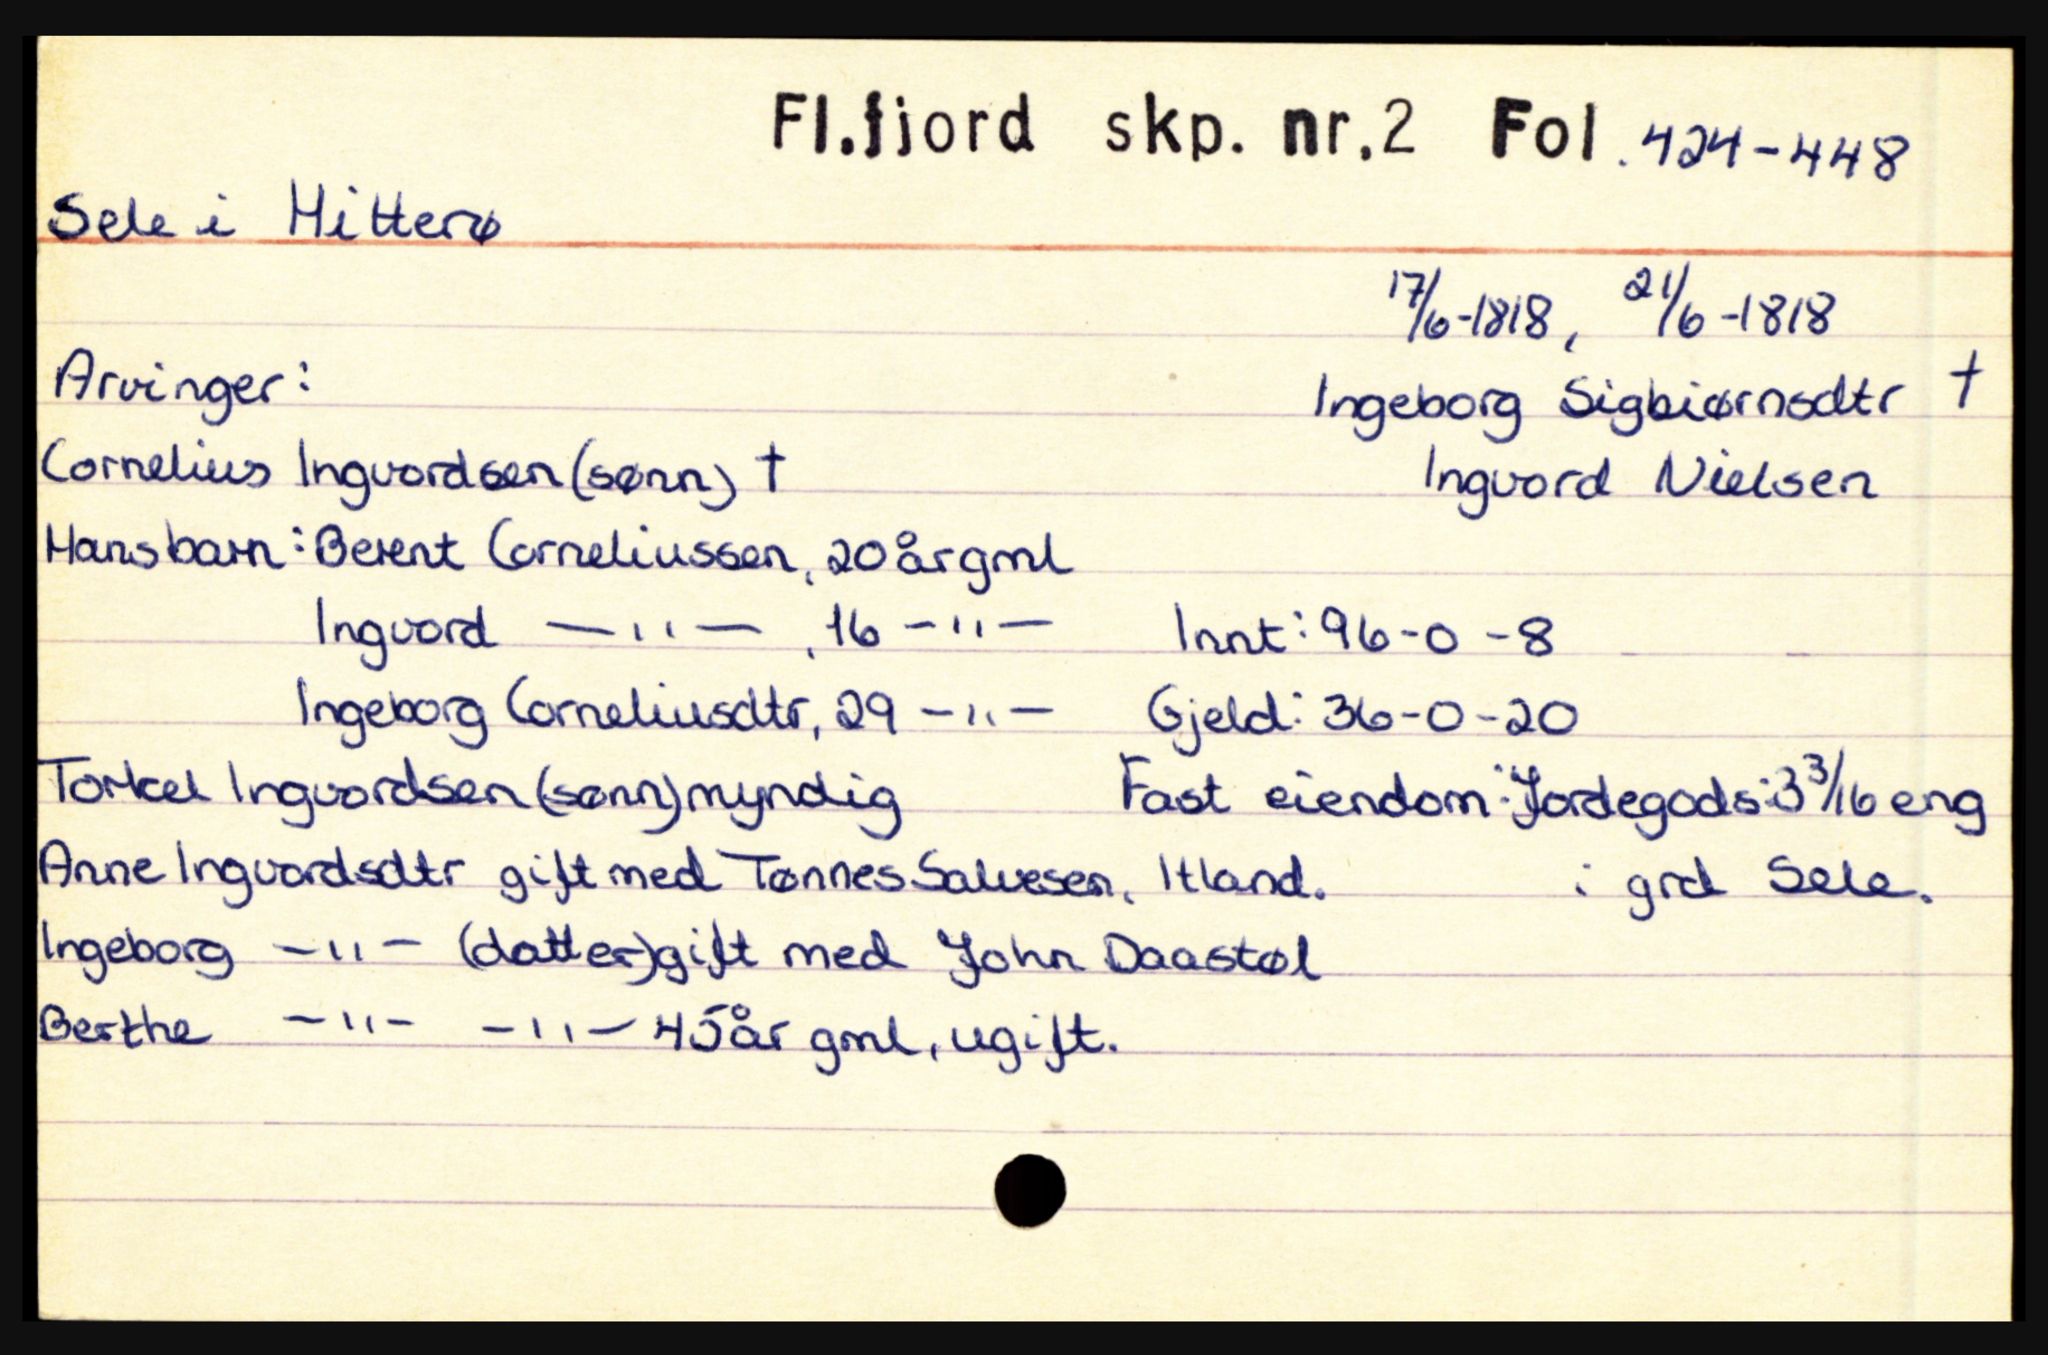 Fl.fjord skp. nr.2 Fol.424-448
Sele i Hitterø
17/6-1818, 21/6-1818
Arvinger: Ingeborg Sigbiørnsdtr †
Cornelius Ingvordsen (sønn) † Ingvord Nielsen
Hans barn: Berent Corneliussen, 20 år gml
Ingvord —"— , 16 —"— Innt: 96-0-8
Ingeborg Corneliusdtr, 29 —"— Gjeld: 36-0-20
Torkel Ingvordsen (sønn) myndig Fast eiendom: Jordegods: 3 3/16 eng
Anne Ingvordsdtr gift med Tønnes Salvesen, Itland. i grd Sele.
Ingeborg —"— (datter) gift med John Daastøl
Berthe —"— —"— 45 år gml, ugift.